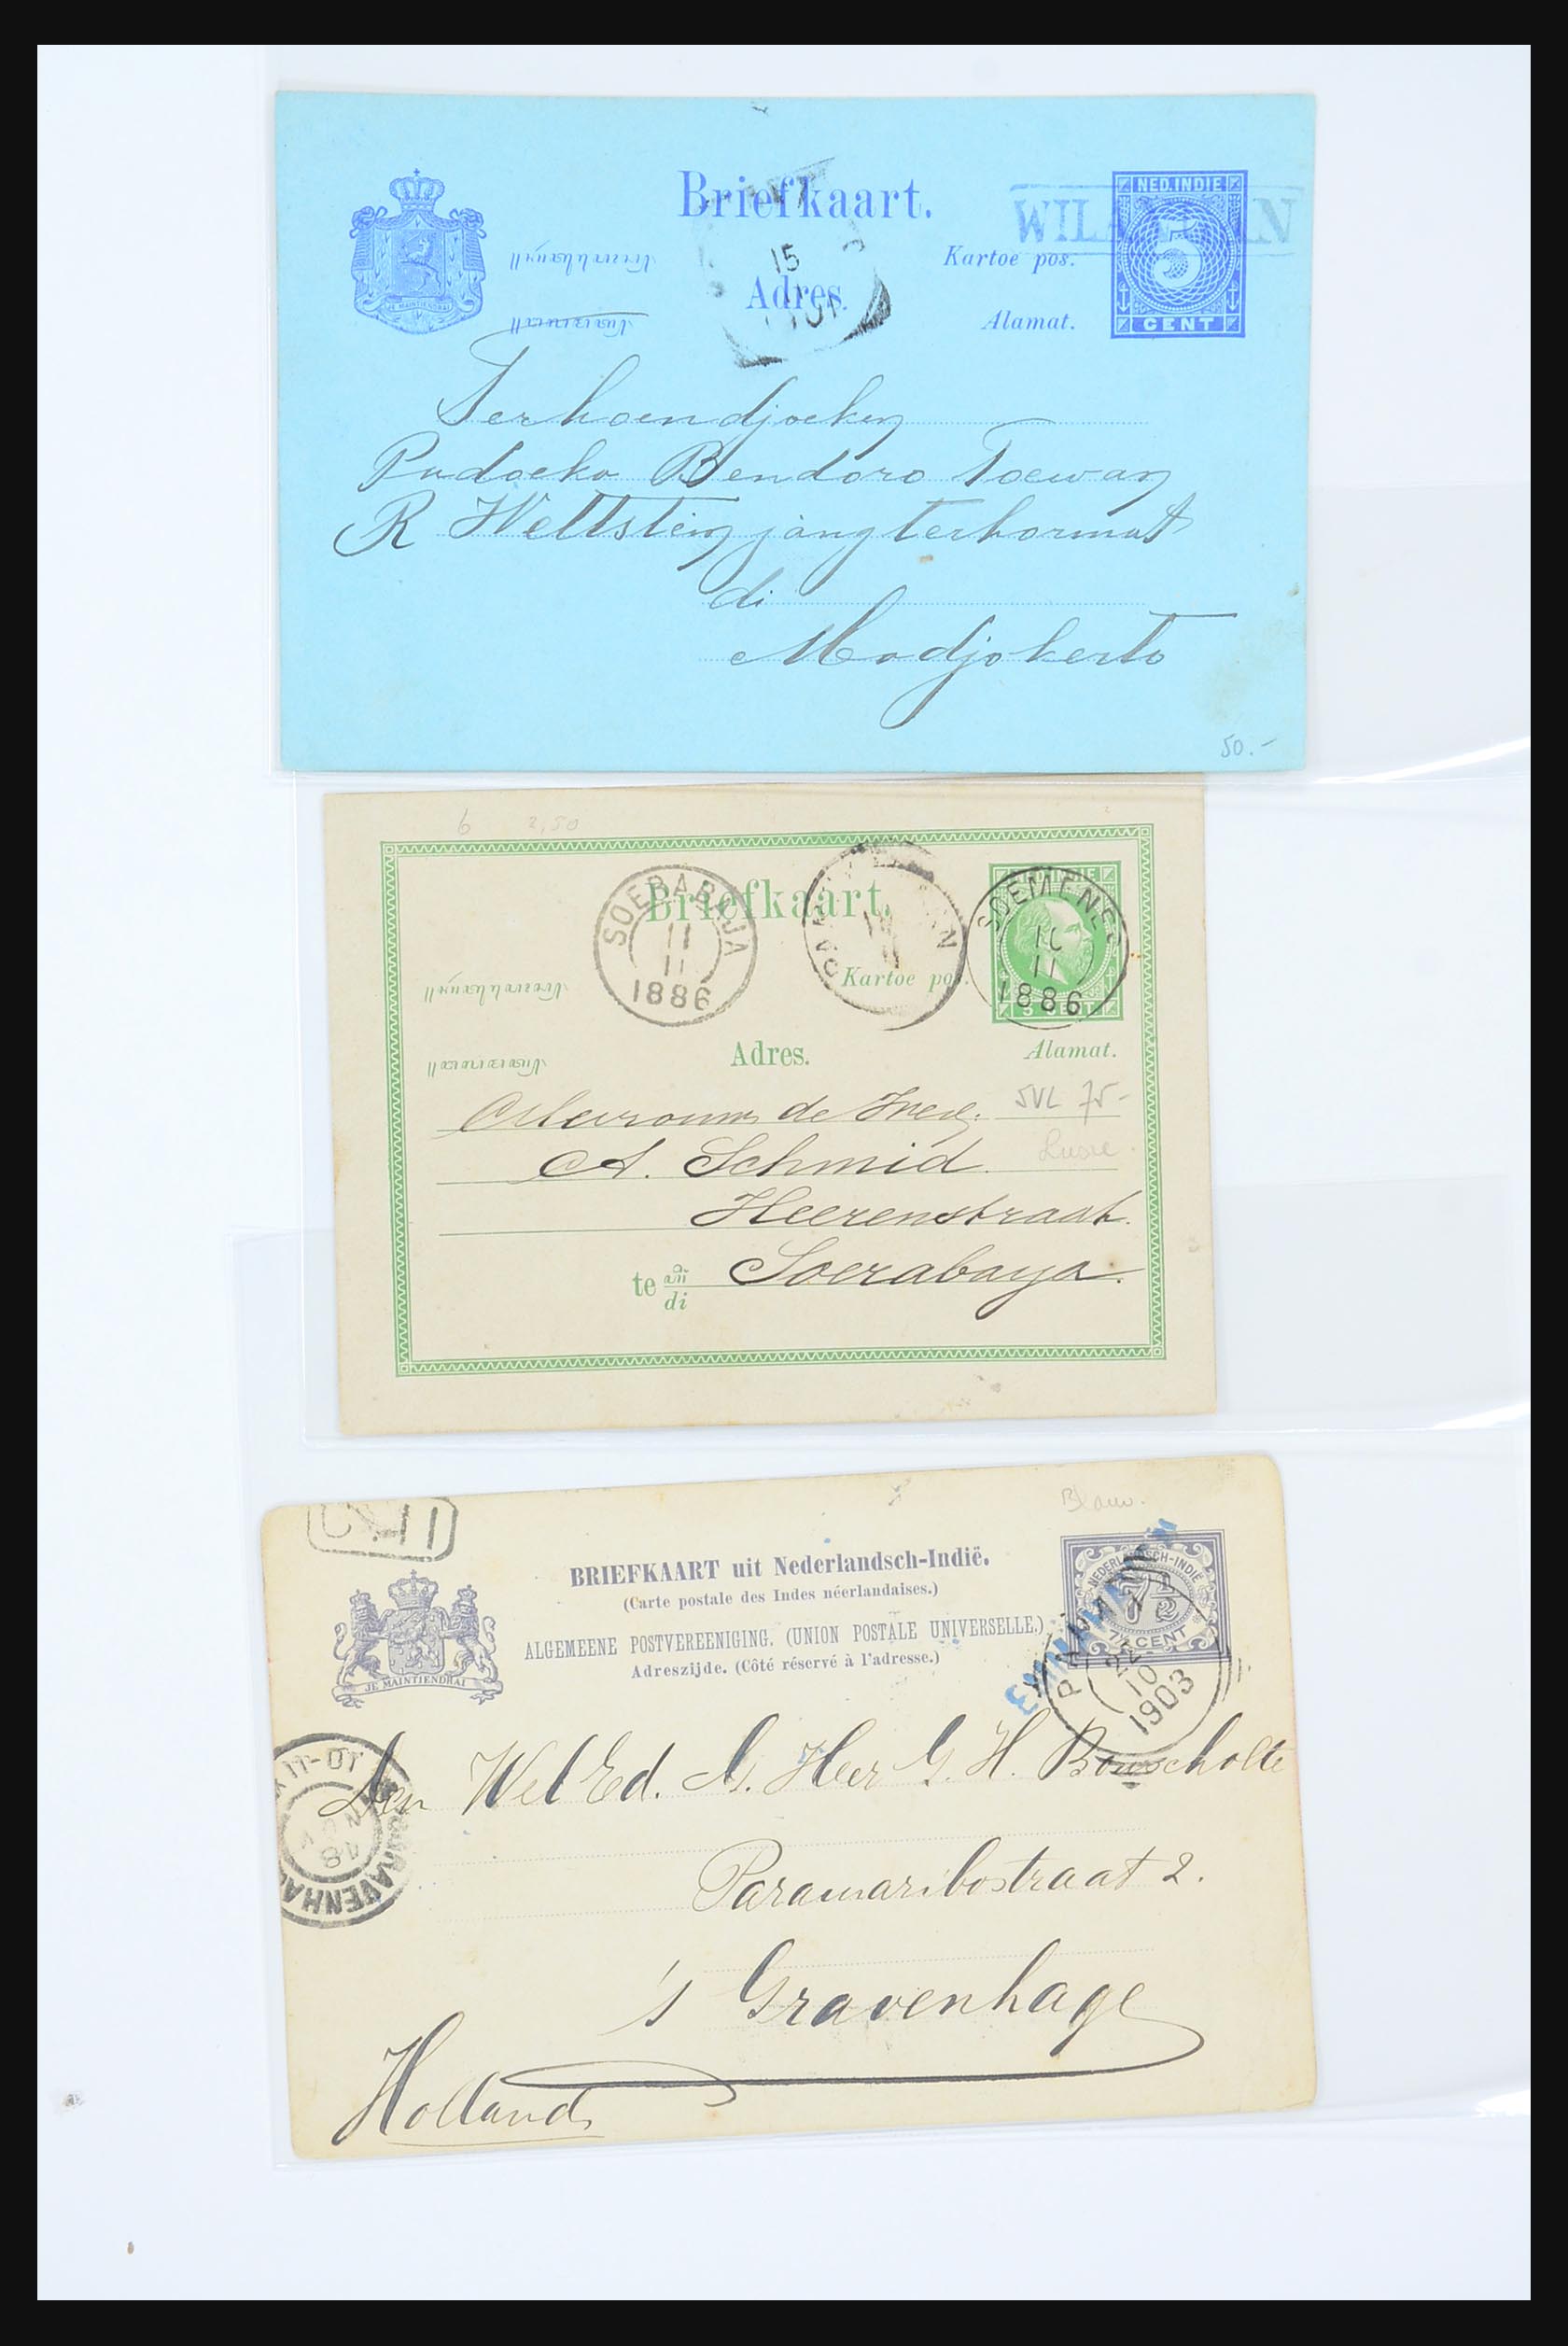 Briefkaart.
NED.INDIE
5
CENT
Kartoe pos.
15
Adres.
Alamat.
JE MAINTIENDRAI
Terhoendjoeken
Padoeko Bendoro Toewan
R Wettstein jang terhormat
di
Modjokerto
50.-
6 2,50
Briefkaart.
SOERABAJA
11
11
1886
SOEMENEP
11
1886
Kartoe pos.
5 CENT
Adres.
Alamat.
Mevrouw de Wed.
SVL 75-
A. Schmid
Luxe
Heerenstraat.
te di Soerabaya.
Blauw.
BRIEFKAART uit Nederlandsch-Indië.
(Carte postale des Indes néerlandaises.)
ALGEMEENE POSTVEREENIGING. (UNION POSTALE UNIVERSELLE.)
Adreszijde. (Côté réservé à l'adresse.)
NEDERLANDSCH-INDIË
7½
7½ CENT
JE MAINTIENDRAI
22
10
1903
Den Wel Ed. G. Heer G. H. Bouscholte
Paramaribostraat 2.
's Gravenhage
Holland